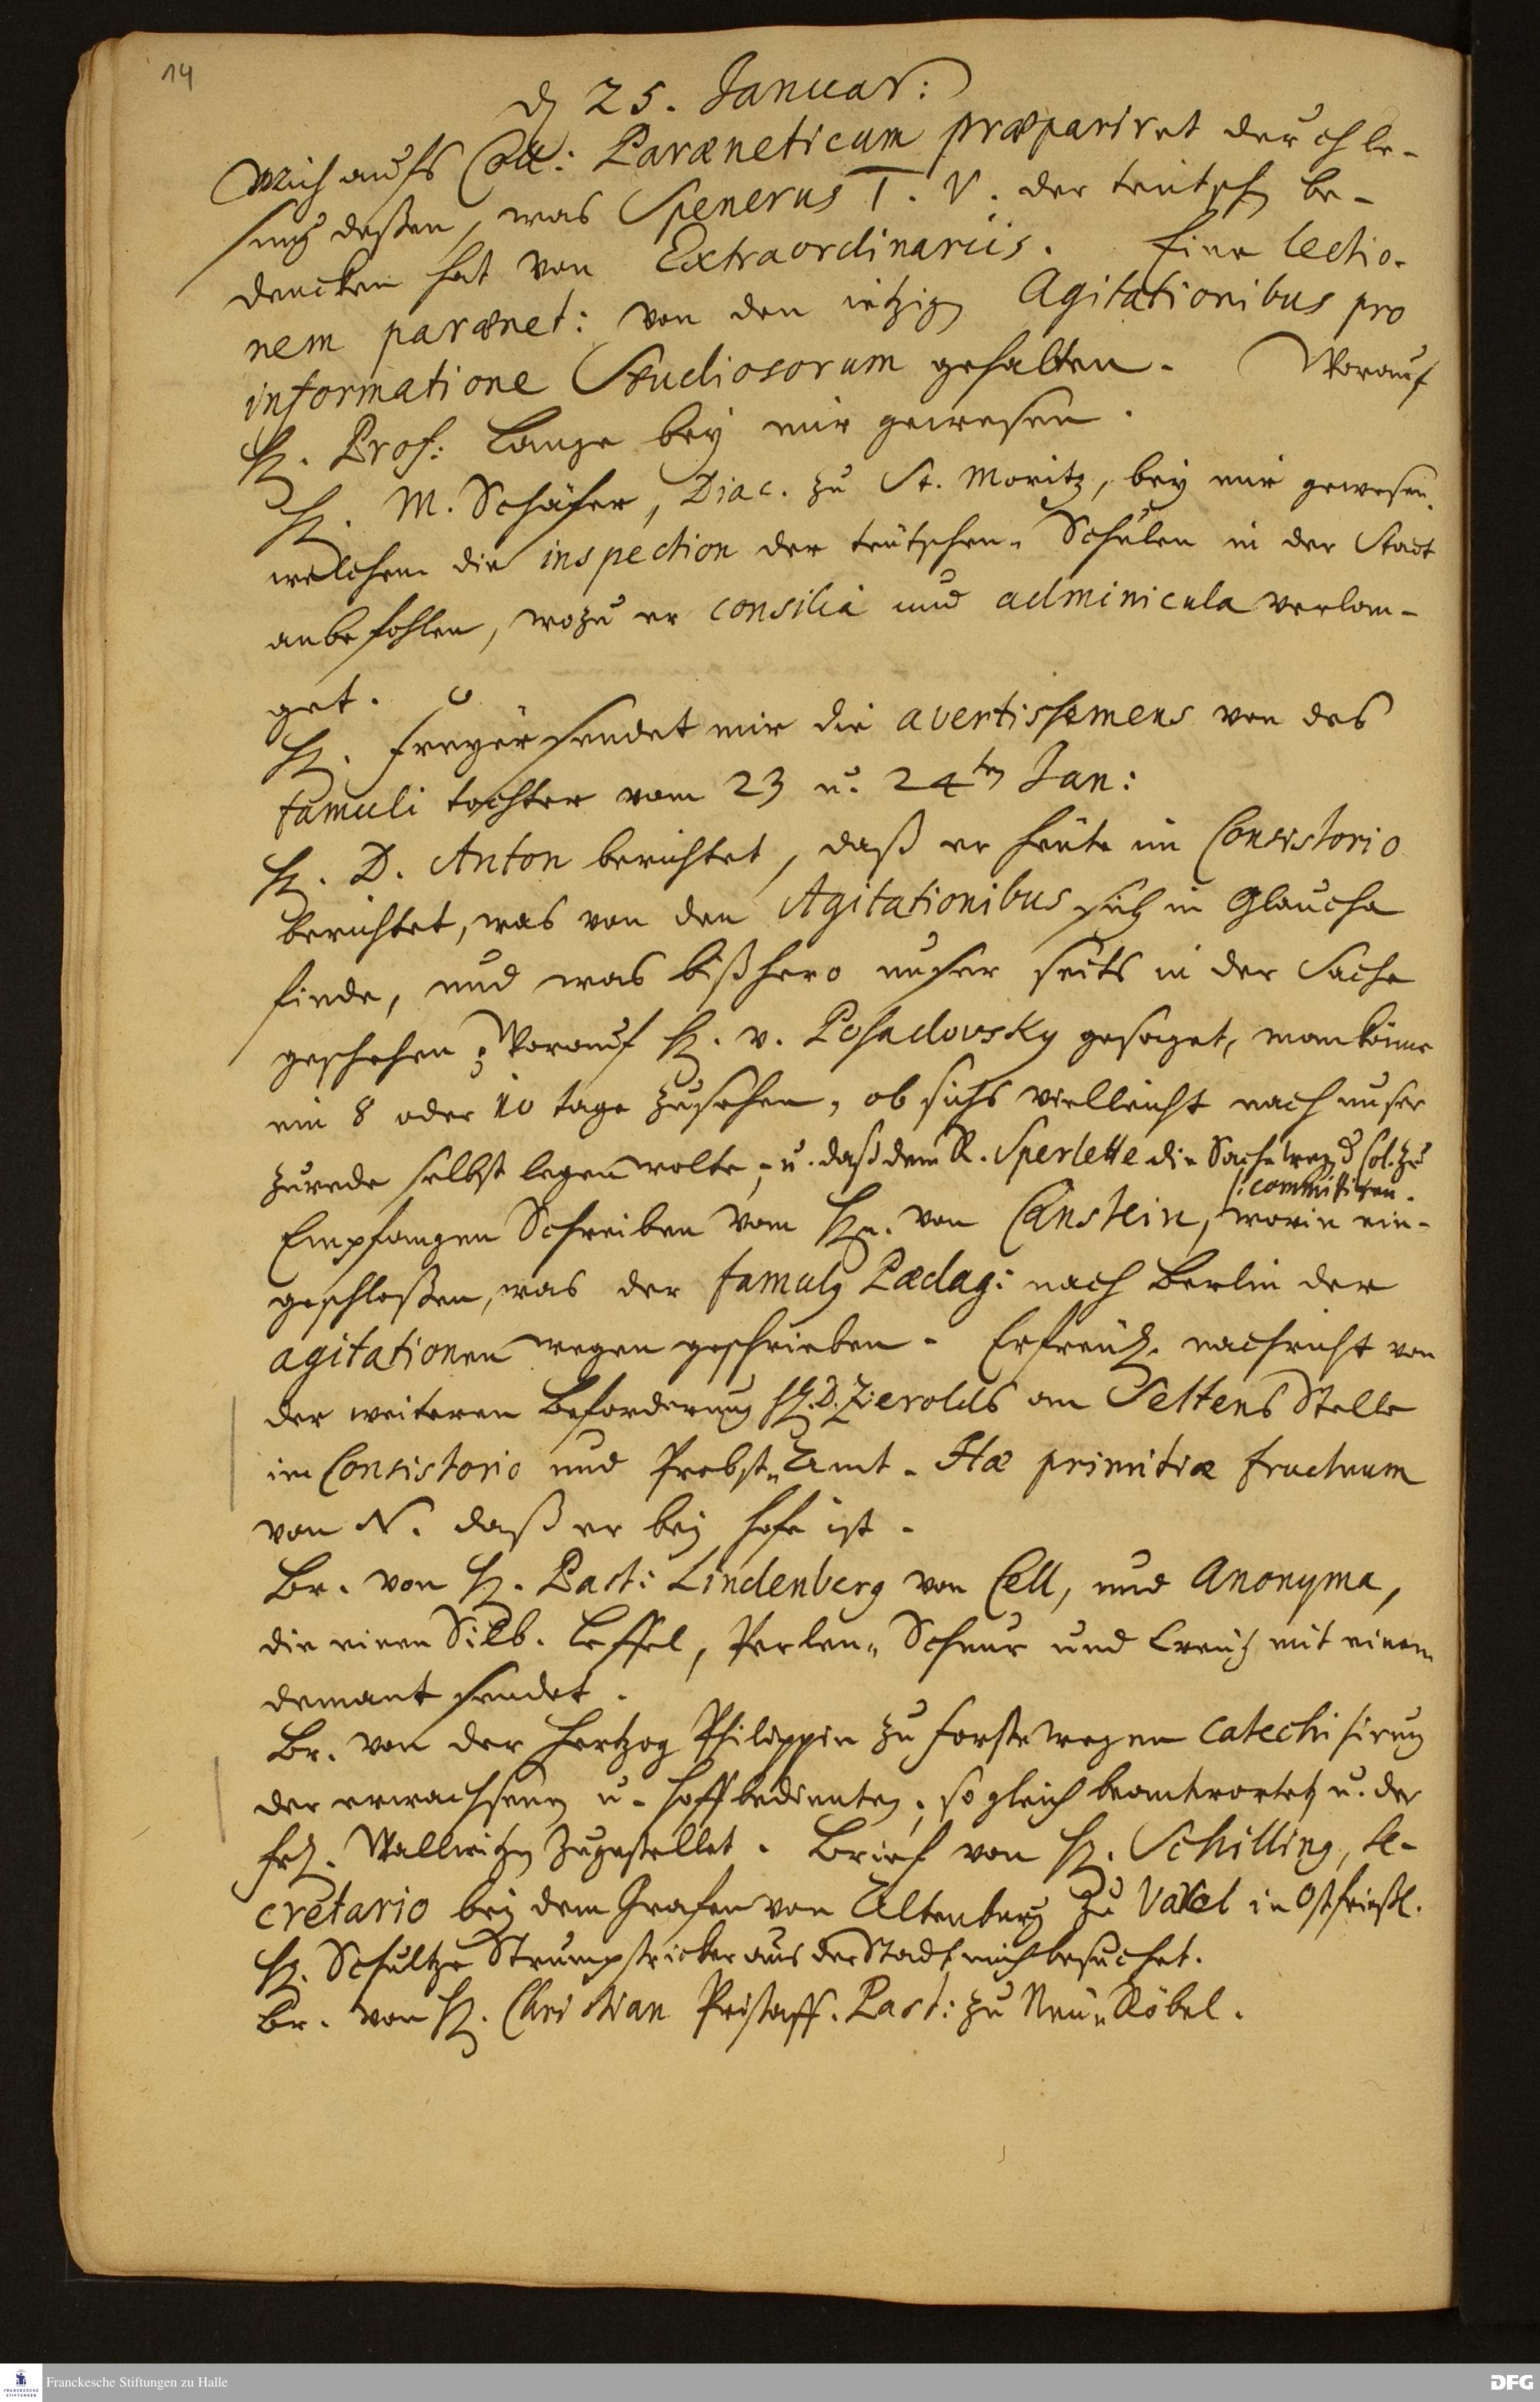 14
d 25. Januar:
Mich aufs Coll: Paræneticum præpariret durch le-
sung deßen, was Spenerus T. V. der teutschen be-
dencken hat von Extraordinariis. Eine lectio-
nem parænet: von den ietzigen Agitationibus pro
informatione Studiosorum gehalten. Worauf
H. Prof: Lange bey mir gewesen.
H. M. Schäfer, Diac. zu St. Moritz, bey mir gewesen,
welchem die inspection der teutschen Schulen in der Stadt
anbefohlen, wozu er consilia und adminicula verlan-
get.
H. Freyer sendet mir die avertissemens von des
famuli tochter vom 23 u. 24ten Jan:
H. D. Anton berichtet, daß er heute im Consistorio
berichtet, was von den Agitationibus sich in Glaucha
finde, und was bißhero unser seits in der Sache
geschehen; Worauf H. v. Posadovsky gesaget, man könne
ein 8 oder 10 tage zusehen, ob sichs vielleicht nach unser
zurede selbst legen wolte, u. daß dem R. Sperlette die Sache zu
committiren.
Empfangen Schreiben vom Hn. von Canstein, worin ein-
geschloßen, was der famulus Pædag: nach Berlin der
agitationen wegen geschrieben. Erfreul. nachricht von
der weiteren Beforderung H. D. Zierolds an Seltens Stelle
im Consistorio und Probst-Amt. Hæ primitiæ fructuum
von N. daß er bey Hofe ist.
Br. von H. Past: Lindenberg von Cell, und Anonyma,
die einen Silb. Leffel, Perlen-Schnur und Creutz mit einem
demant sendet.
Br. von der Hertzog Philippin zu Forste wegen Catechisirung
der erwachsenen u. Hoffbedienten, so gleich beantwortet u. der
Frl. Wallwitzen zugestellet. Brief von H. Schilling, Se-
cretario bey dem Grafen von Altenburg zu Varel in Ostfriesl.
H. Schultze Strumpstricker aus der Stadt mich besuchet.
Br. von H. Christian Pristaff. Past: zu Neu-Röbel.
Franckesche Stiftungen zu Halle
DFG